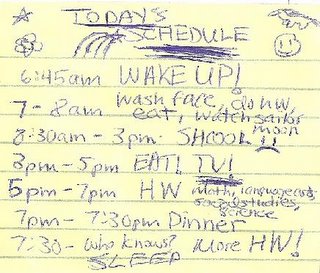 TODAY'S
SCHEDULE
6:45am WAKE UP!
7 - 8am wash face, do hw,
eat, watch sailor
moon
8:30am - 3pm. SHCOOL
3pm - 5pm EAT! TV!
5pm - 7pm HW math, language arts,
social studies,
science
7pm - 7:30pm Dinner
7:30 - who knows? More HW!
SLEEP